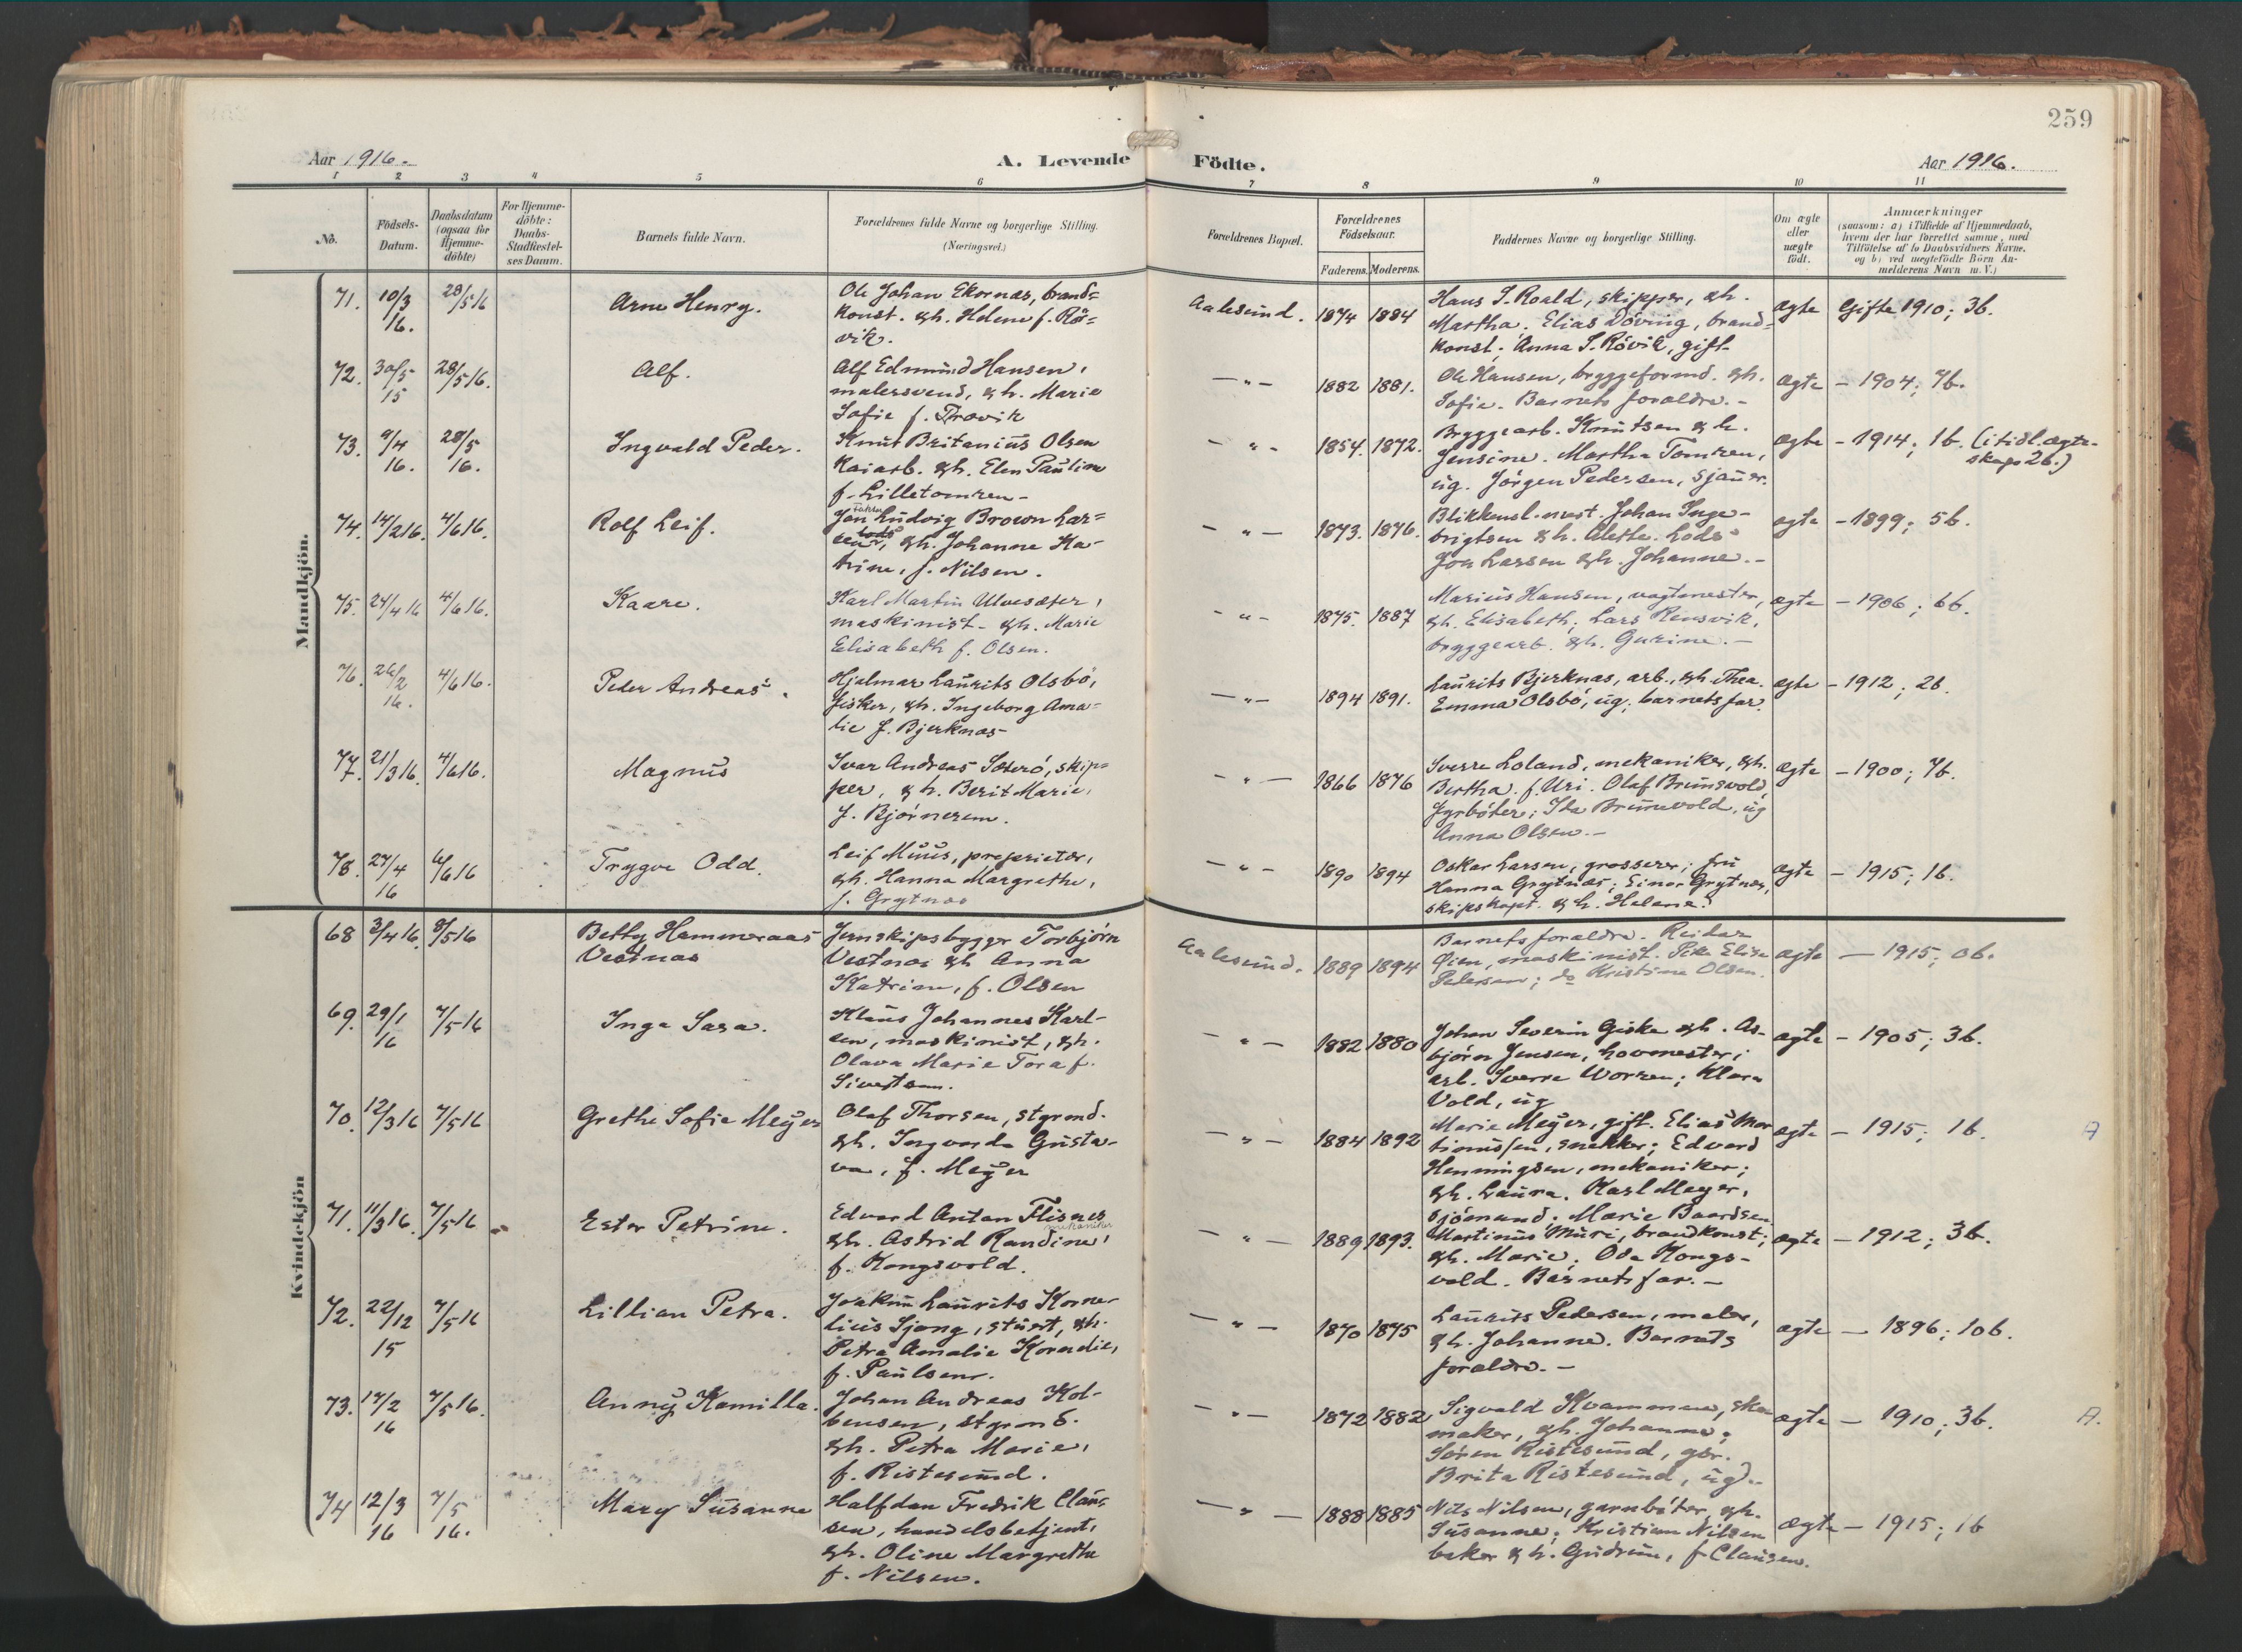 259
Aar 1916.
A. Levende Födte.
Aar 1916.
1 2 3 4 5 6 7 8 9 10 11
No.
Födsels-
Datum.
Daabsdatum
(ogsaa för
Hjemme-
döbte)
For Hjemme-
döbte:
Daabs-
Stadfæstel-
ses Datum.
Barnets fulde Navn.
Forældrenes fulde Navne og borgerlige Stilling.
(Næringsvei.)
Forældrenes Bopæl.
Forældrenes
Födselsaar.
Faderens. Moderens.
Faddernes Navne og borgerlige Stilling.
Om ægte
eller
uægte
födt.
Anmærkninger
(saasom: a) i Tilfælde af Hjemmedaab,
hvem der har forrettet samme, med
Tilföielse af to Daabsvidners Navne.
og b) ved uægtefödte Börn An-
melderens Navn m. V.)
Mandkjön.
71. 10/3 16. 28/5 16 Arne Henry.
Ole Johan Ekornæs, brand=
konst. & h. Helene f. Rö=
vik.
Aalesund. 1874 1884
Hans S. Roald, skipper, & h.
Martha. Elias Döving, brand=
konst; Anna S. Rövik, gift.
ægte Gifte 1910; 3b.
72. 30/5 15 28/5 16. Alf.
Alf Edmund Hansen,
malersvend, & h. Marie
Sofie f. Trovik
—"— 1882 1881.
Ole Hansen, bryggeformd. & h.
Sofie. Barnets foraldre. -
ægte - 1904; 7b.
73. 9/4 16. 28/5 16. Ingvald Peder.
Knut Britanius Olsen
Kaiarb. & h. Elen Pauline
f. Lilletomren-
—"— 1854. 1872.
Bryggearb. Knutsen & h.
Jensine. Martha Tomren,
ug. Jörgen Pedersen, Sjauer.
ægte - 1914; 1b. (i tidl. ægte-
skap 2b.)
74. 14/2 16. 4/6 16. Rolf Leif.
Jon Ludvig Brown Lar=
sen, lods & h. Johanne Ka-
trine, f. Nilsen.
—"— 1873. 1876.
Blikkensl. mest. Johan Inge-
brigtsen & h. Alette. Lods-
Jon Larsen & h. Johanne. -
ægte - 1899; 5b.
75. 24/4 16 4/6 16. Kaare.
Karl Martin Ulvesæter,
maskinist - & h. Marie
Elisabeth f. Olsen.
—"— 1875. 1887
Marius Hansen, vagtmester,
& h. Elisabeth; Lars Rensvik,
bryggearb. & h. Gurine. -
ægte - 1906; 6b.
76. 26/2 16. 4/6 16. Peder Andreas.
Hjalmar Laurits Olsbö,
fisker, & h. Ingeborg Ama=
lie f. Bjerknæs
—"— 1894 1891.
Laurits Bjerknæs, arb., & h. Thea.
Emma Olsbö, ug; barnets far.
ægte - 1912; 2b.
77. 21/3 16. 4/6 16. Magnus
Ivar Andreas Sæterö, skip=
per, & h. Berit Marie,
f. Björnerem.
—"— 1866 1876
Sverre Loland, mekaniker, & h.
Bertha. f. Uri. Olaf Brunsvold,
fyrböter; Ida Brunevold, ug
Anna Olsen. -
ægte - 1900; 7b.
78. 27/4 16 4/6 16 Trygve Odd.
Leif Muus, proprietær,
& h. Hanna Margrethe,
f. Grytnæs
—"— 1890 1894
Oskar Larsen, grosserer; fru
Hanna Grytnæs; Einar Grytnæs,
skipskapt. & h. Helene.
ægte - 1915; 1b.
Kvindekjön
68 2/4 16. 7/5 16 Betty Hammeraas
Vestnæs
Jernskipsbygger Torbjörn
Vestnæs & h Anna
Katrine, f. Olsen
Aalesund. 1889 1894
Barnets foraldre. Reidar
Öien, maskinist. Pike Elise
Pedersen; do Kristine Olsen.
ægte — 1915; 0b.
69. 29/1 16 7/5 16 Inga Sara.
Klaus Johannes Karl-
sen, maskinist, & h.
Olava Marie Tora f.
Sivertsen.
—"— 1882 1880
Johan Severin Giske & h. As-
björn Jensen, hovmester;
arb. Sverre Worren; Klara
Vold, ug
ægte - 1905; 3b.
70. 12/3 16 7/5 16 Grethe Sofie Meyer
Olaf Thorsen, styrmd.
& h. Ingvarda Gusta-
va, f. Meyer
—"— 1884 1892
Marie Meyer, gift. Elias Mar
tinussen, snekker; Edvard
Henningsen, mekaniker;
& h. Laura. Karl Meyer,
sjömand; Marie Baardsen
ægte - 1915; 1b. A
71. 11/3 16. 7/5 16 Ester Petrine.
Edvard Anton Flisnes
mekaniker
& h. Astrid Randine,
f. Kongsvold.
—"— 1889 1893.
Martinus Muri, brandkonst;
& h. Marie. Oda Kongs-
vold. Barnets far. -
ægte - 1912; 3b.
72. 22/12 15 7/5 16 Lillian Petra.
Joakim Laurits Korne-
lius Sjong, stuert, & h.
Petra Amalie Korndie,
f. Paulsen.
—"— 1870 1875
Laurits Pedersen, maler,
& h. Johanne. Barnets
foraldre. -
ægte — 1896; 10b.
73. 17/2 16 7/5 16. Anny Kamilla.
Johan Andreas Kol-
bensen, styrmd.
& h. Petra Marie,
f. Ristesund.
—"— 1872 1882
Sigvald Kvammen, sko
maker, & h. Johanne;
Sören Ristesund, gbr.
Brita Ristesund, ug.
ægte - 1910; 3b. A.
74 12/3 16 7/5 16. Mary Susanne
Halfdan Fredrik Clau-
sen, handelsbetjent,
& h. Oline Margrethe
f. Nilsen.
—"— 1888 1885
Nils Nilsen, garnböter, & h.
Susanne; Kristian Nilsen
baker & h. Gudrun, f Clausen.
ægte - 1915; 1b